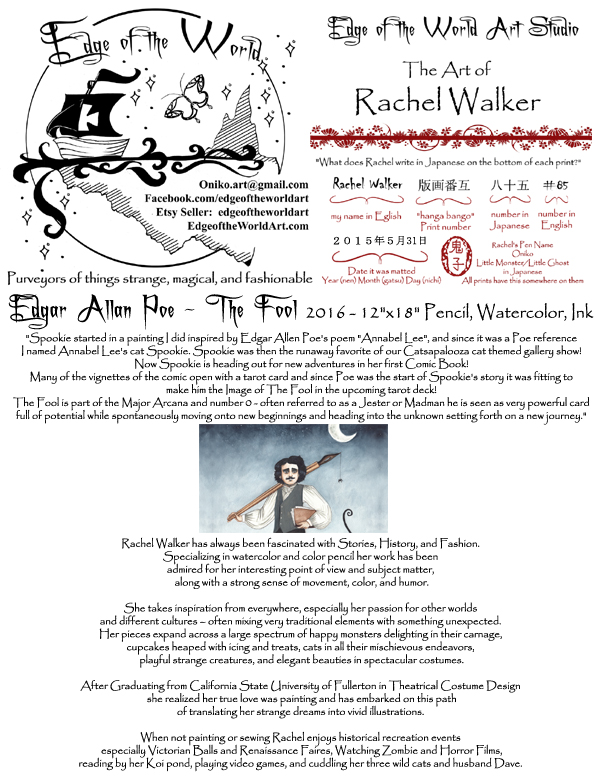 Edge of the World
Oniko.art@gmail.com
Facebook.com/edgeoftheworldart
Etsy Seller: edgeoftheworldart
EdgeoftheWorldArt.com
Purveyors of things strange, magical, and fashionable
Edge of the World Art Studio
The Art of
Rachel Walker
"What does Rachel write in Japanese on the bottom of each print?"
Rachel Walker 版画番互 八十五 #85
my name in Eglish "hanga bango" Print number number in Japanese number in English
2015年5月31日
Date it was matted
Year (nen) Month (gatsu) Day (nichi)
鬼子
Rachel's Pen Name
Oniko
Little Monster/Little Ghost
in Japanese
All prints have this somewhere on them
Edgar Allan Poe - The Fool 2016 - 12"x18" Pencil, Watercolor, Ink
"Spookie started in a painting I did inspired by Edgar Allen Poe's poem "Annabel Lee", and since it was a Poe reference
I named Annabel Lee's cat Spookie. Spookie was then the runaway favorite of our Catsapalooza cat themed gallery show!
Now Spookie is heading out for new adventures in her first Comic Book!
Many of the vignettes of the comic open with a tarot card and since Poe was the start of Spookie's story it was fitting to
make him the Image of The Fool in the upcoming tarot deck!
The Fool is part of the Major Arcana and number 0 - often referred to as a Jester or Madman he is seen as very powerful card
full of potential while spontaneously moving onto new beginnings and heading into the unknown setting forth on a new journey."
Rachel Walker has always been fascinated with Stories, History, and Fashion.
Specializing in watercolor and color pencil her work has been
admired for her interesting point of view and subject matter,
along with a strong sense of movement, color, and humor.
She takes inspiration from everywhere, especially her passion for other worlds
and different cultures – often mixing very traditional elements with something unexpected.
Her pieces expand across a large spectrum of happy monsters delighting in their carnage,
cupcakes heaped with icing and treats, cats in all their mischievous endeavors,
playful strange creatures, and elegant beauties in spectacular costumes.
After Graduating from California State University of Fullerton in Theatrical Costume Design
she realized her true love was painting and has embarked on this path
of translating her strange dreams into vivid illustrations.
When not painting or sewing Rachel enjoys historical recreation events
especially Victorian Balls and Renaissance Faires, Watching Zombie and Horror Films,
reading by her Koi pond, playing video games, and cuddling her three wild cats and husband Dave.